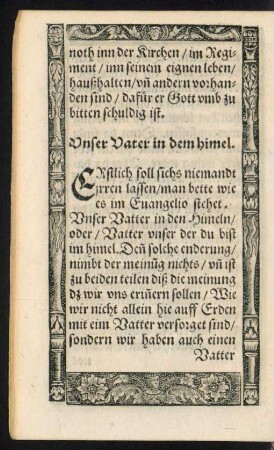 noth inn der Kirchen / im Regi
ment / inn seinem eignen leben /
haußhalten / vñ andern vorhan-
den sind / dafür er Gott vmb zu
bitten schuldig ist.
Vnser Vater in dem himel.
ERstlich soll sichs niemandt
Erren lassen / man bette wie
es im Euangelio stehet.
Vnser Vatter in den Himeln /
oder / Vatter vnser der du bist
im himel. Deñ solche enderung /
nimbt der meinũg nichts / vñ ist
zu beiden teilen diß die meinung
dz wir vns eriñern sollen / Wie
wir nicht allein hie auff Erden
mit eim Vatter versorget sind /
sondern wir haben auch einen
Vatter